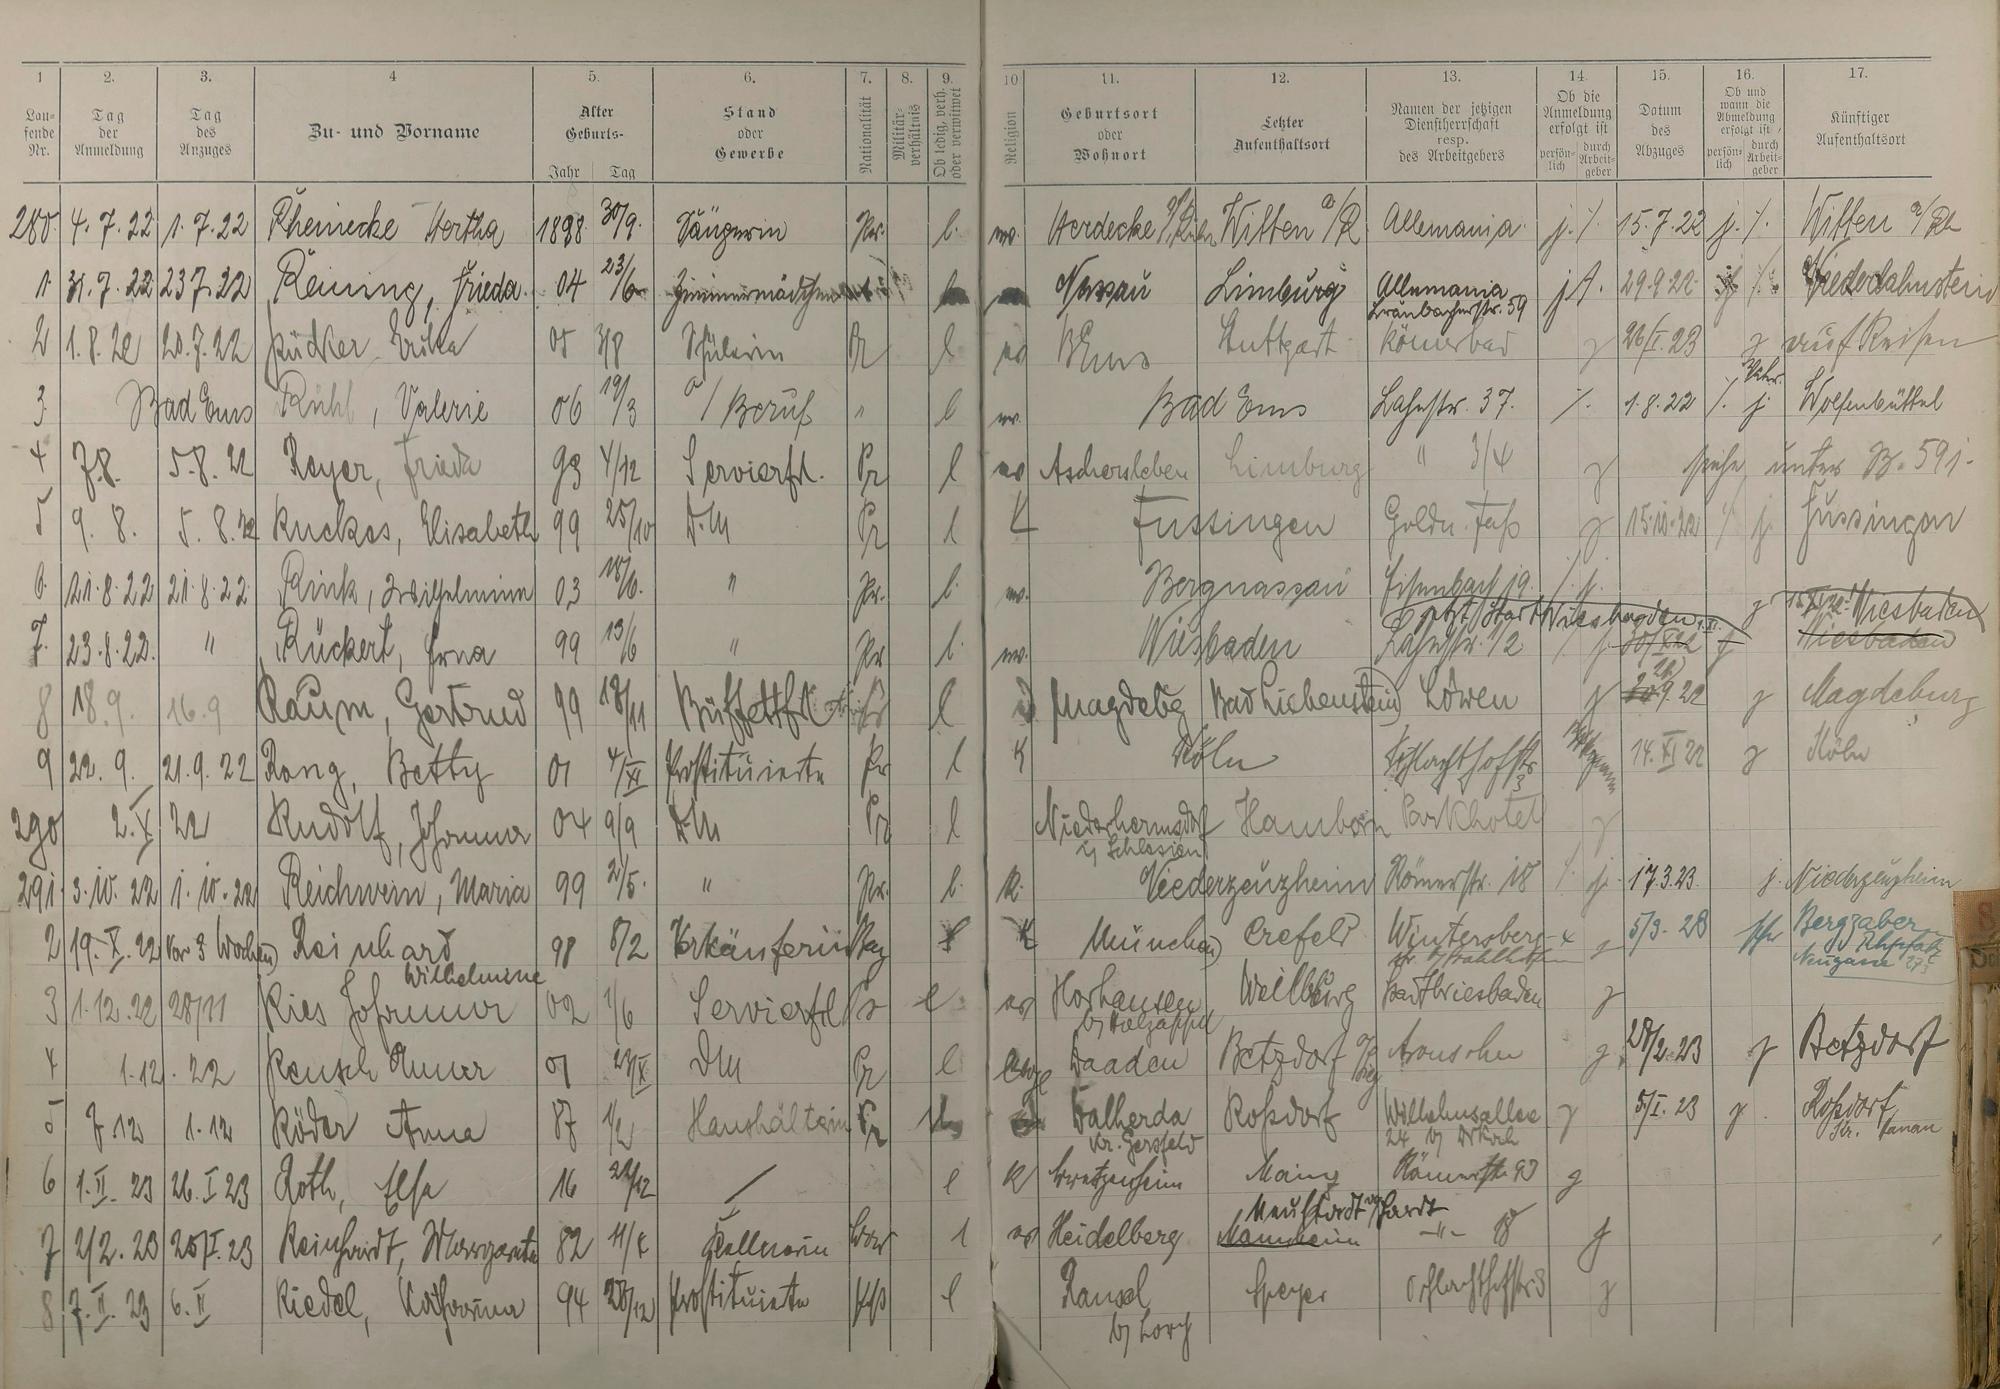 1 2. 3. 4 5. 6. 7. 8. 9. 10 11. 12. 13. 14. 15. 16. 17.
Lau-
fende
Nr.
Tag
der
Anmeldung
Tag
des
Anzuges
Zu- und Vorname
Alter
Geburts-
Jahr Tag
Stand
oder
Gewerbe
Nationalität
Militär-
verhältnis
Ob ledig, verh.
oder verwitwet
Religion
Geburtsort
oder
Wohnort
Letzter
Aufenthaltsort
Namen der jetzigen
Dienstherrschaft
resp.
des Arbeitgebers
Ob die
Anmeldung
erfolgt ist
persön-
lich
durch
Arbeit-
geber
Datum
des
Abzuges
Ob und
wann die
Abmeldung
erfolgt ist
persön-
lich
durch
Arbeit-
geber
Künftiger
Aufenthaltsort
280. 4.7.22 1.7.22 Rheinecke Hertha 1898 30/9. Sängerin Pr. l. ev. Herdecke Witten a/R Allemania j. /. 15.7.22 j. /. Witten
1. 31.7.22 23.7.22 Reining, Frieda 04 23/6 Zimmermädchen Nassau Limburg Allemania 29.9.22 Niederlahnstein
59
2 1.8.22 20.7.22 Erika 05 3/8 Schülerin Pr l ev BEms Stuttgart Römerbad j 26/I.23 j auf Reisen
3 Bad Ems Rühl, Valerie 06 19/3 o/Beruf " l ev. Bad Ems Lahnstr. 37. /. 1.8.22 /. j Wolfenbüttel
4 7.8. 5.8.22 Reyer, Frieda 93 4/12 Servierfrl. Pr l ev Aschersleben Limburg " 3/4 j siehe unter B. 591.
5 9.8. 5.8.22 Ruckes, Elisabeth 99 25/10 D.M Pr l K Fussingen Goldn. Faß j 15.10.22 / j Fussingen
6. 21.8.22 21.8.22 Rink, Wilhelmine 03 18/6. " Pr. l. ev. Bergnassau Eisenbach 19. /. j.
jetzt Stadt Wiesbaden j Wiesbaden
7. 23.8.22. " Rückert, Erna 99 13/6 " Pr l. ev. Wiesbaden Lahnstr. 12 / j. j Wiesbaden
8 18.9. 16.9 Raum, Gertrud 99 18/11 Büffettfrl l Magdebg Bad Liebenstein Löwen j 9.22 j Magdeburg
9 22.9. 21.9.22 Rong, Betty 01 4/XI Prostituierte Pr l K Köln Schlachthofstr 14.XI 22 j Köln
3
290 2.X 22 Rudolf, Johanna 04 9/9 D.M Pr l Niederhermsdorf Hamborn Parkhotel j
i/ Schlesien
291. 3.10.22 1.10.22 Reichwein, Maria 99 2/5. " Pr. l. K. Niederzeuzheim Römerstr. 18 /. j. 17.3.23. j. Niederzeuzheim
2 19.X.22 vor 3 Wochen Reinhard 98 8/2 Verkäuferin l K München Crefeld Wintersberg j 5/3.23 Bergzabern
Wilhelmine Neugasse 273
3 1.12.22 28/11 Ries Johanna 02 1/6 Servierfrl Pr l ev Horhausen Weilburg Stadt Wiesbaden j
b/ Holzappel
4 1.12.22 Reusch Anna 01 DM Pr l evgl Daaden Betzdorf Aronsohn j 28/2.23 j Betzdorf
5 7.12 1.12 Röder Anna 87 1/2 Haushälterin Pr Dalherda Roßdorf Wilhelmsallee j 5/I.23 j. Roßdorf,
Kr. Gersfeld 24 Kr. Hanau
6 1.II.23 26.I 23 Roth, Else 16 / l K Bretzenheim Mainz Römerstr 93 j
7 2/2.23 25/I.23 Reinhardt, Margarete 82 11/4 Kellnerin l ev Heidelberg Mannheim -"- j
Neustadt Hardt
8 7.II.23 6.II Riedel, Katharina 94 28/12 Prostituierte l Ransel Speyer Schlachthofstr 3 j
b/ Lorch